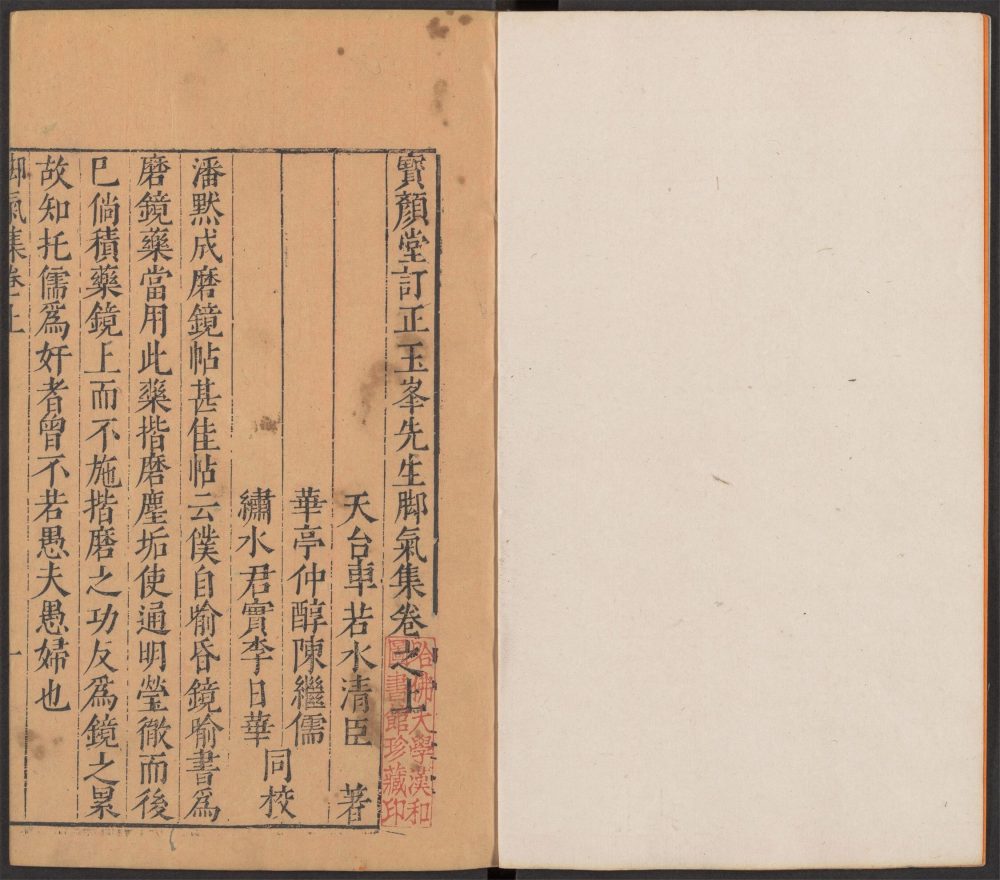 寶顏堂訂正玉峯先生脚氣集卷之上
天台車若水清臣 著
華亭仲醇陳繼儒
繡水君實李日華
同校
潘默成磨鏡帖甚佳帖云僕自喻昏鏡喻書爲
磨鏡藥當用此藥揩磨塵垢使通明瑩徹而後
已倘積藥鏡上而不施揩磨之功反爲鏡之累
故知托儒爲奸者曾不若愚夫愚婦也
脚氣集卷上
一
哈佛大學漢和
圖書館珍藏印